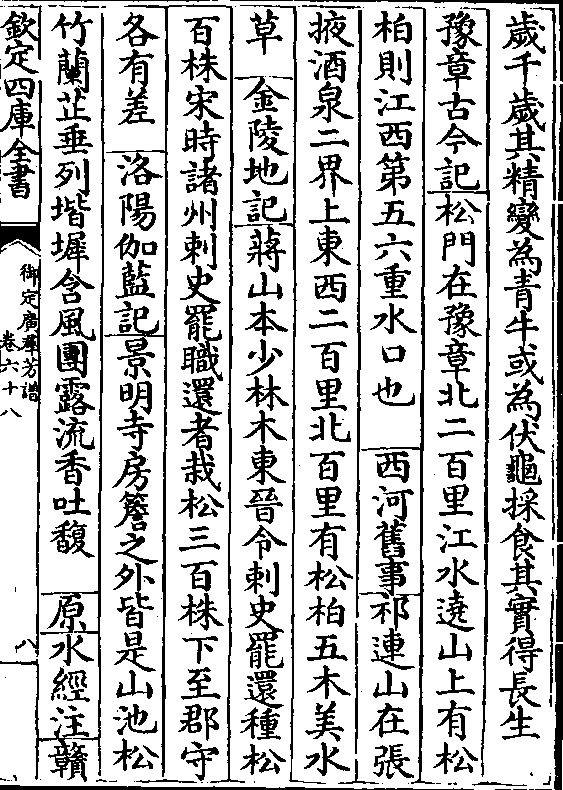 歲千歲其精變為青牛或為伏龜採食其實得長生
豫章古今記松門在豫章北二百里江水遶山上有松
柏則江西第五六重水口也　西河舊事祁連山在張
掖酒泉二界上東西二百里北百里有松柏五木美水
草　金陵地記蔣山本少林木東晉令刺史罷還種松
百株宋時諸州刺史罷職還者栽松三百株下至郡守
各有差　洛陽伽藍記景明寺房簷之外皆是山池松
竹蘭芷垂列堦墀含風團露流香吐馥　原水經注贛
欽定四庫全書
御定廣羣芳譜
卷六十八
八